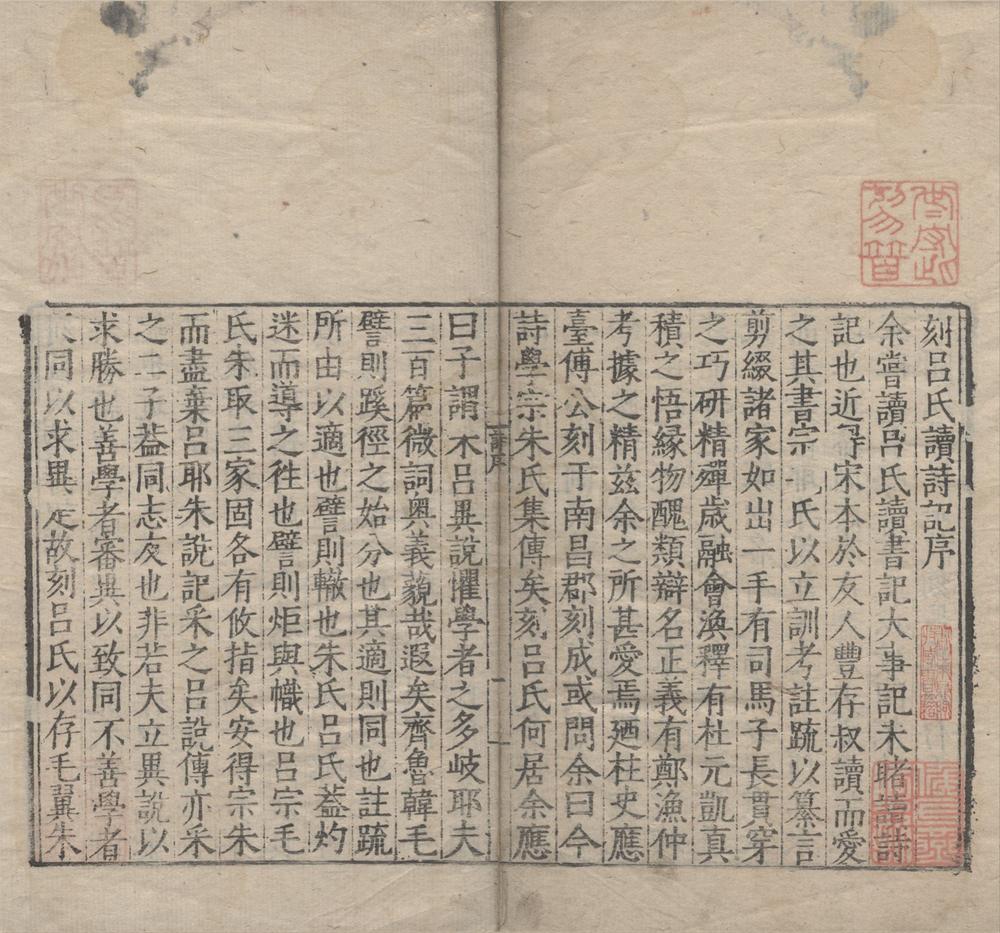 刻呂氏讀詩記序
余嘗讀呂氏讀書記大事記未睹讀詩
記也近得宋本於友人豐存叔讀而愛
之其書宗氏以立訓考註䟽以纂言
剪綴諸家如出一手有司馬子長貫穿
之巧研精殫歲融會渙釋有杜元凱真
積之悟緣物醜類辯名正義有鄭漁仲
考據之精兹余之所甚愛焉廼柱史應
臺傅公刻于南昌郡刻成或問余曰今
詩學宗朱氏集傳矣刻呂氏何居余應
詩序
一
曰子謂朱呂異說懼學者之多岐耶夫
三百篇微詞奥義藐哉遐矣齊魯韓毛
譬則蹊徑之始分也其適則同也註䟽
所由以適也譬則轍也朱氏呂氏葢灼
迷而導之徃也譬則炬與幟也呂宗毛
氏朱取三家固各有攸指矣安得宗朱
而盡棄呂耶朱說記采之呂說傳亦采
之二子葢同志友也非若夫立異說以
求勝也善學者審異以致同不善學者
同以求異是故刻呂氏以存毛翼朱